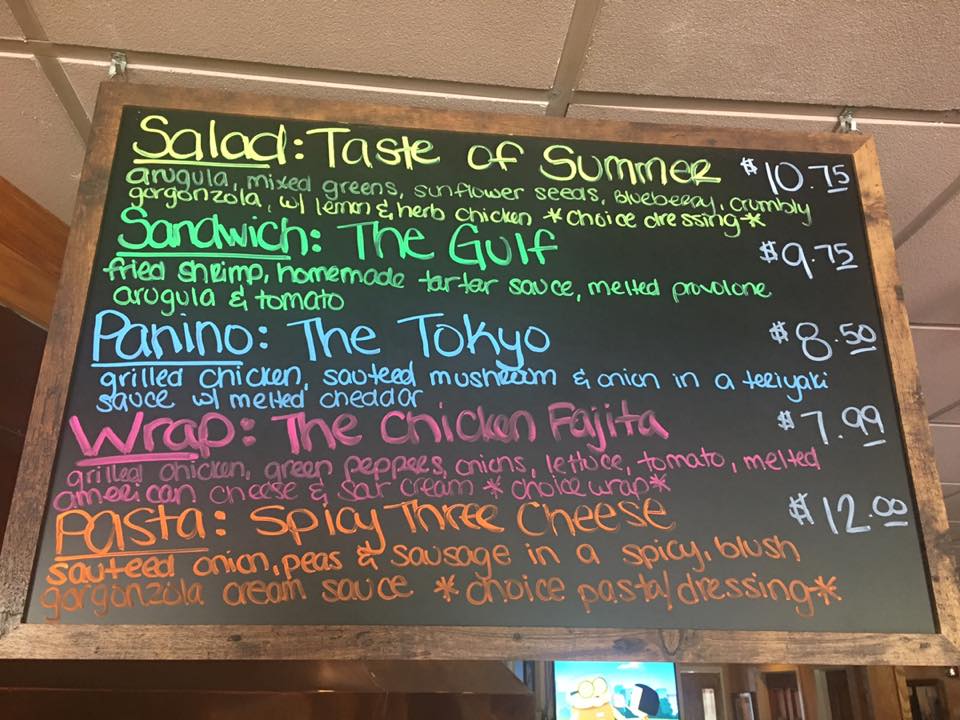 Salad: Taste of Summer $10.75
arugula, mixed greens, sunflower seeds, blueberry, crumbly
gorgonzola, w/ lemon & herb chicken *choice dressing*
Sandwich: The Gulf $9.75
fried shrimp, homemade tarter sauce, melted provolone
arugula & tomato
Panino: The Tokyo $8.50
grilled chicken, sauteed mushroom & onion in a teriyaki
sauce w/ melted cheddar
Wrap: The Chicken Fajita $7.99
grilled chicken, green peppers, onions, lettuce, tomato, melted
american cheese & sour cream *choice wrap*
Pasta: Spicy Three Cheese $12.00
sauteed onion, peas & sausage in a spicy, blush
gorgonzola cream sauce *choice pasta/dressing*